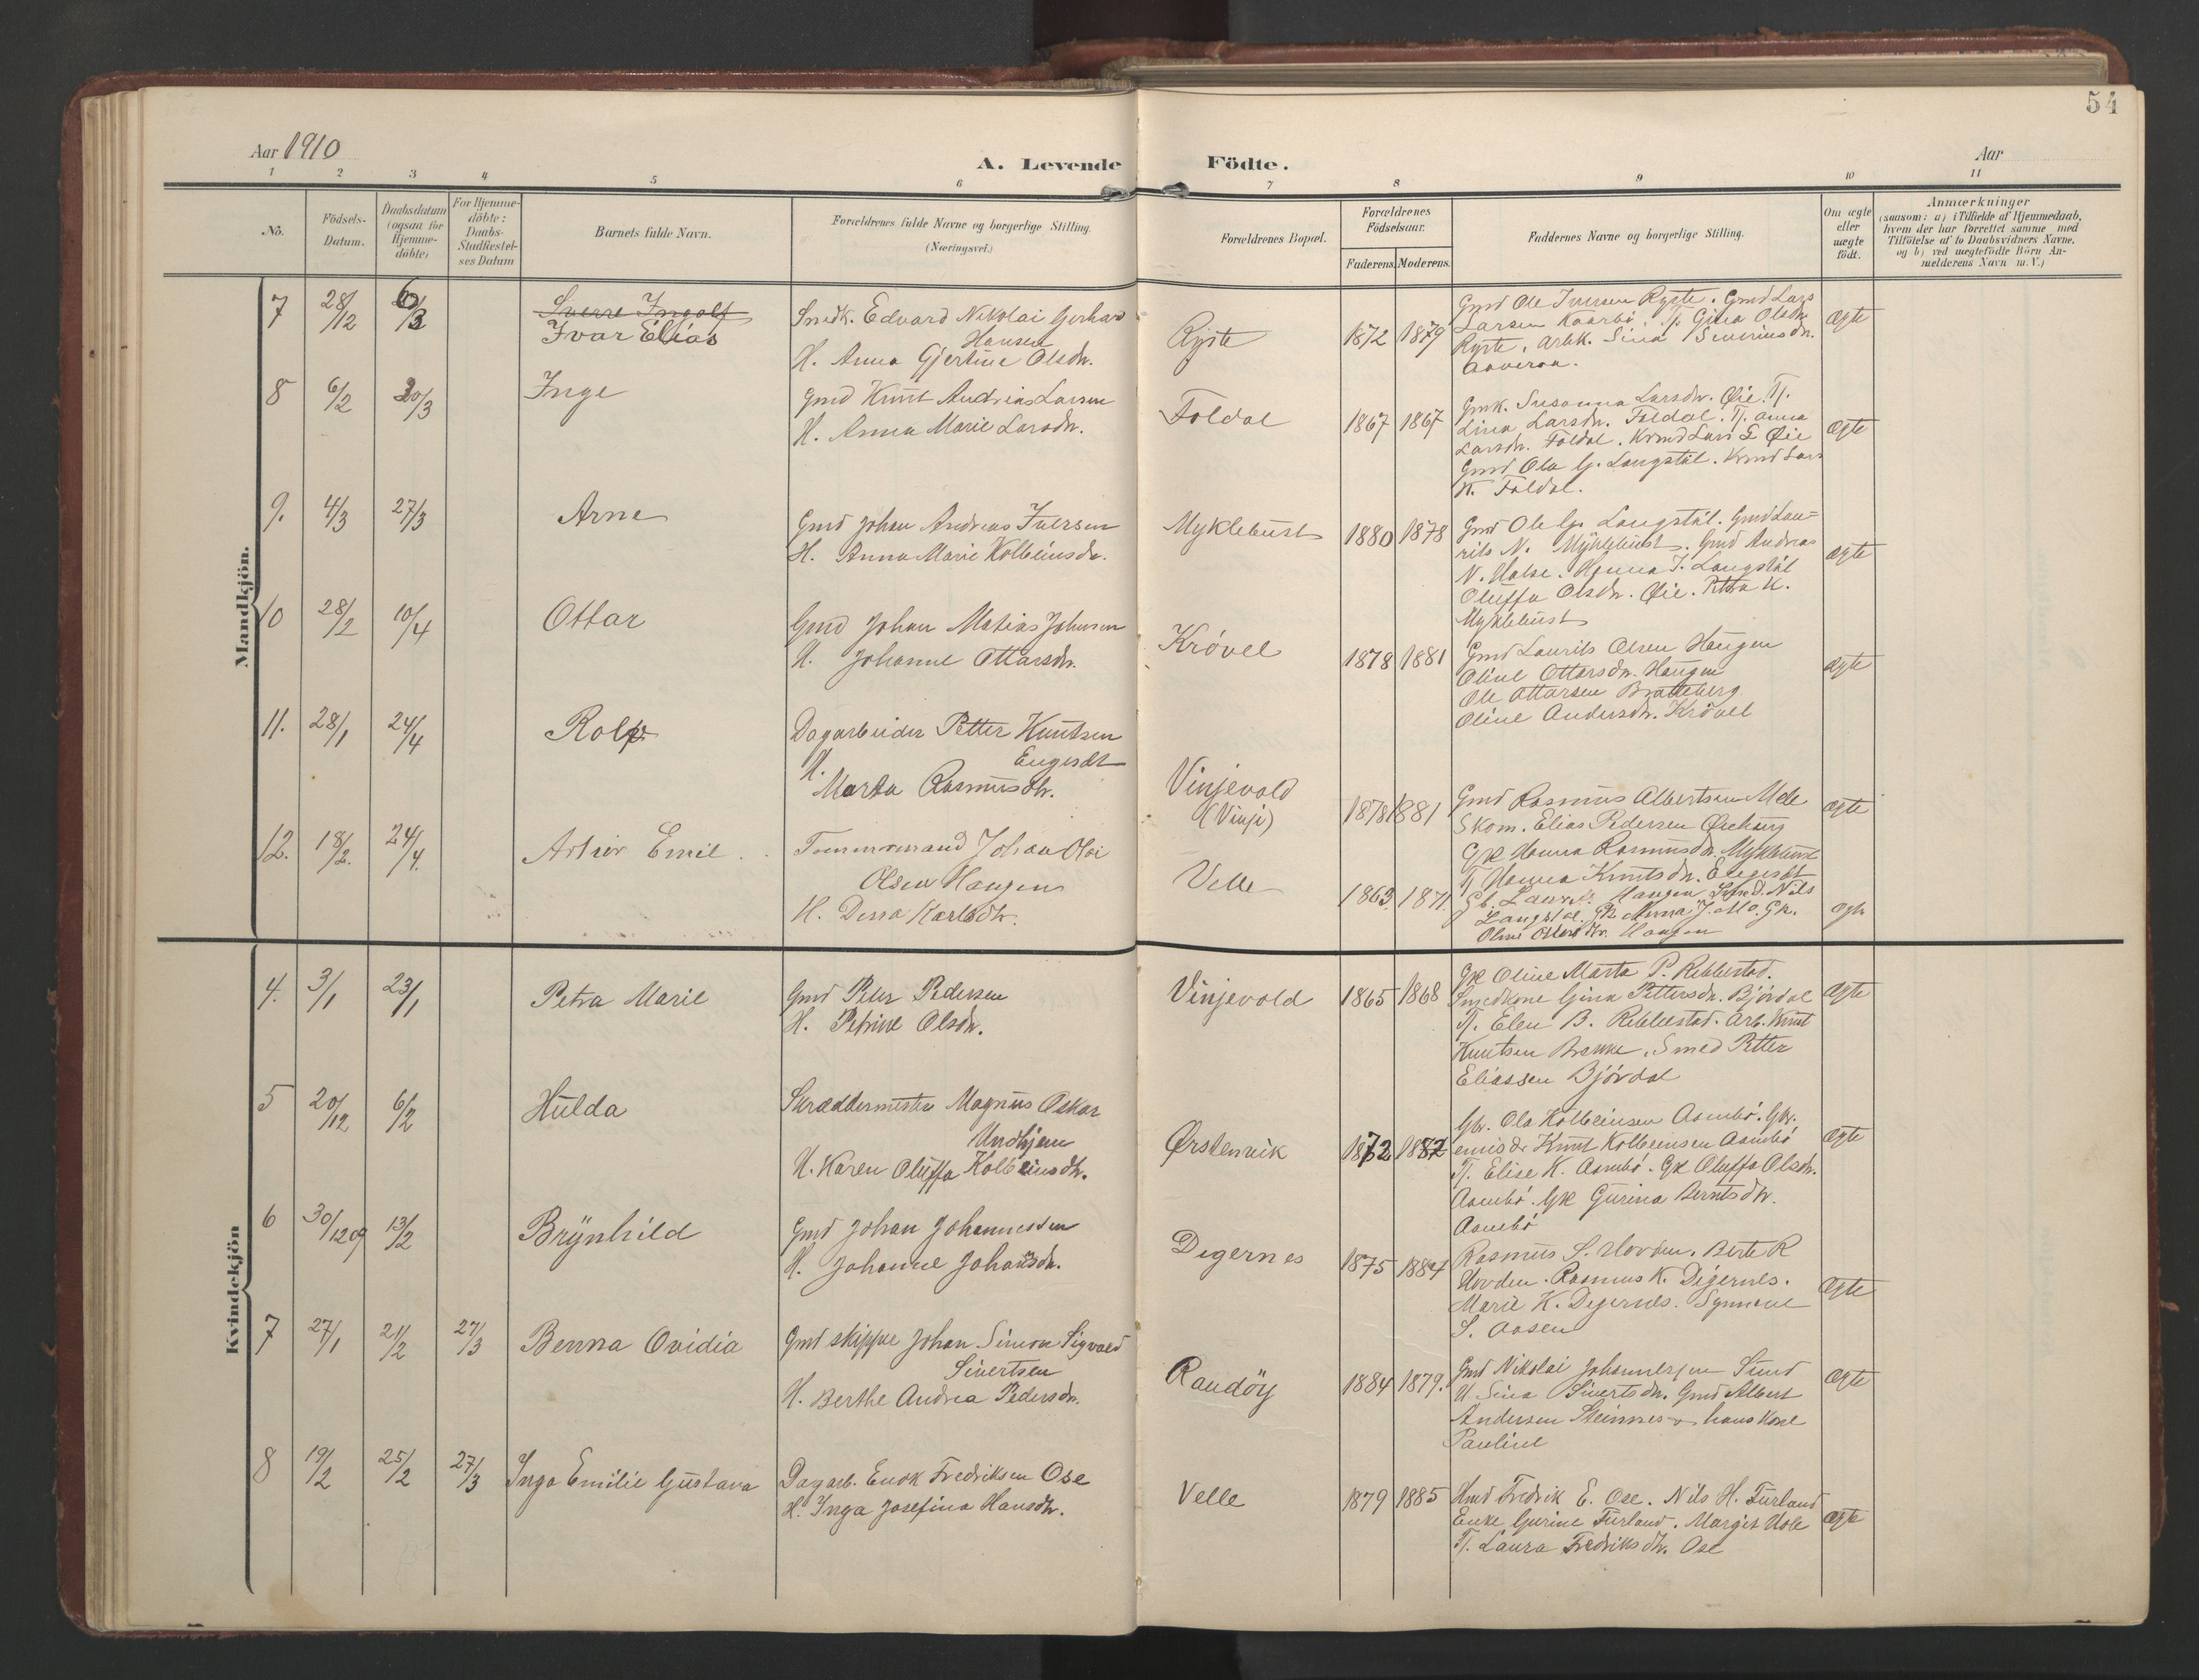 54
Aar 1910
A. Levende Födte.
Aar
1 2 3 4 5 6 7 8 9 10 11
No.
Födsels-Datum.
Daabsdatum (ogsaa for Hjemme-döbte)
For Hjemme-döbte: Daabs-Stadfæstel-ses Datum
Barnets fulde Navn.
Forældrenes fulde Navne og borgerlige Stilling.
(Næringsvei.)
Forældrenes Bopæl.
Forældrenes Födselsaar.
Faderens. Moderens.
Faddernes Navne og borgerlige Stilling.
Om ægte eller uægte födt.
Anmærkninger
(saasom: a) i Tilfælde af Hjemmedaab,
hvem der har forrettet samme med
Tilföielse af to Daabsvidners Navne,
og b) ved uægtefödte Börn An-
melderens Navn m. V.)
Mandkjön.
7 28/12 6/3 Sverre Ingolf
Ivar Elias
Smedk. Edvard Nikolai Gerhard
Hansen
H. Anna Gjertine Olsdtr.
Ryste 1872 1879
Gmd Ole Iversen Ryste. Gmd Lars
Larsen Kaarbö. Gina Olsdtr
Ryste. Arbk. Sina Severinsdtr.
Aaveraa.
ægte
8 6/2 20/3 Inge
Gmd Knut Andreas Larsen
H. Anna Marie Larsdtr.
Foldal 1867 1867
Gmk. Susanna Larsdtr. Øie. Tj.
Lina Larsdtr. Foldal. Tj. Anna
Larsdtr. Foldal. Kvmd Lars L Øie
Gmd Ola G. Langstöl. Kvmd Lars
K. Foldal.
ægte
9. 4/3 27/3 Arne
Gmd Johan Andreas Iversen
H. Anna Marie Kolbeinsdtr.
Myklebust 1880 1878
Gmd Ole G. Langstöl. Gmd Lau-
rits N. Myklebust. Gmd Andreas
N. Halse. Hanna I. Langstöl
Oluffa Olsdtr. Øie. Petra K.
Myklebust
ægte
10 28/2 10/4 Ottar
Gmd Johan Matias Johnsen
H. Johanne Ottarsdtr.
Krövel 1878 1881
Gmd Laurits Olsen Haugen
Oline Ottarsdtr. Haugen
Ole Ottarsen Bratteberg
Oline Andersdtr. Krövel
ægte
11. 28/1 24/4 Rolf
Dagarbeider Petter Knutsen
Engeset
H. Marta Rasmusdtr.
Vinjevold
(Vinje) 1878 1881
Gmd Rasmus Albertsen Mele
Skom. Elias Pedersen Ørehaug
Gk Hanna Rasmusdtr. Myklebust
Tj Hanna Knutsdtr. Engeset
ægte
12. 18/2. 24/4. Artur Emil
Tømmermand Johan Olai
Olsen Haugen
H. Dina Karlsdtr.
Velle 1863. 1871.
Gb. Laurits Haugen Smed. Nils
Langstöl. Gk Anna J. Mo. Gk.
Oline Ottersdtr. Haugen
ægte
Kvindekjön
4. 3/1 23/1 Petra Marie
Gmd Peter Pedersen
H. Petrine Olsdtr.
Vinjevold 1865 1868
Gk Oline Marta P. Ribbestad.
Smedkone Gina Pettersdtr. Björdal
Tj. Elen B. Ribbestad. Arb. Knut
Knutsen Brekke. Smed Petter
Eliassen Björdal
ægte
5 20/12 6/2 Hulda
Skræddermester Magnus Oskar
Undhjem
H. Karen Oluffa Kolbeinsdtr.
Ørstenvik 1872 1882
Gbr. Ola Kolbeinsen Aambö. Gbr.
Knut Kolbeinsen Aambö
Tj. Elise K. Aambö. Gk Oluffa Olsdtr.
Aambö. Gk Gurina Berntsdtr.
Aambö
ægte
6 30/12 09 13/2 Brynhild
Gmd Johan Johannessen
H. Johanne Johansdtr.
Digernes 1875 1884
Rasmus S. Hovden. Berte R
Hovden. Rasmus K. Digernes.
Marie K. Digernes. Synnøve
S. Aasen
ægte
7 27/1 21/2 27/3 Benna Ovidia
Gmd skipper Johan Simon Sigvald
Sivertsen
H. Berthe Andrea Pedersdtr.
Raudöy 1884 1879.
Gmd Nikolai Johannessen Sund
H Sina Sivertsdtr. Gmd Albert
Andersen Steinnes + hans kone
Pauline
ægte
8 19/2 25/2 27/3 Inga Emilie Gustava
Dagarb. Enok Fredriksen Ose
H. Inga Josefina Hansdtr.
Velle 1879 1885
Hmd Fredrik E. Ose. Nils H. Furland
Enke Gurine Furland. Margit Hole
Tj. Laura Fredriksdtr. Ose
ægte